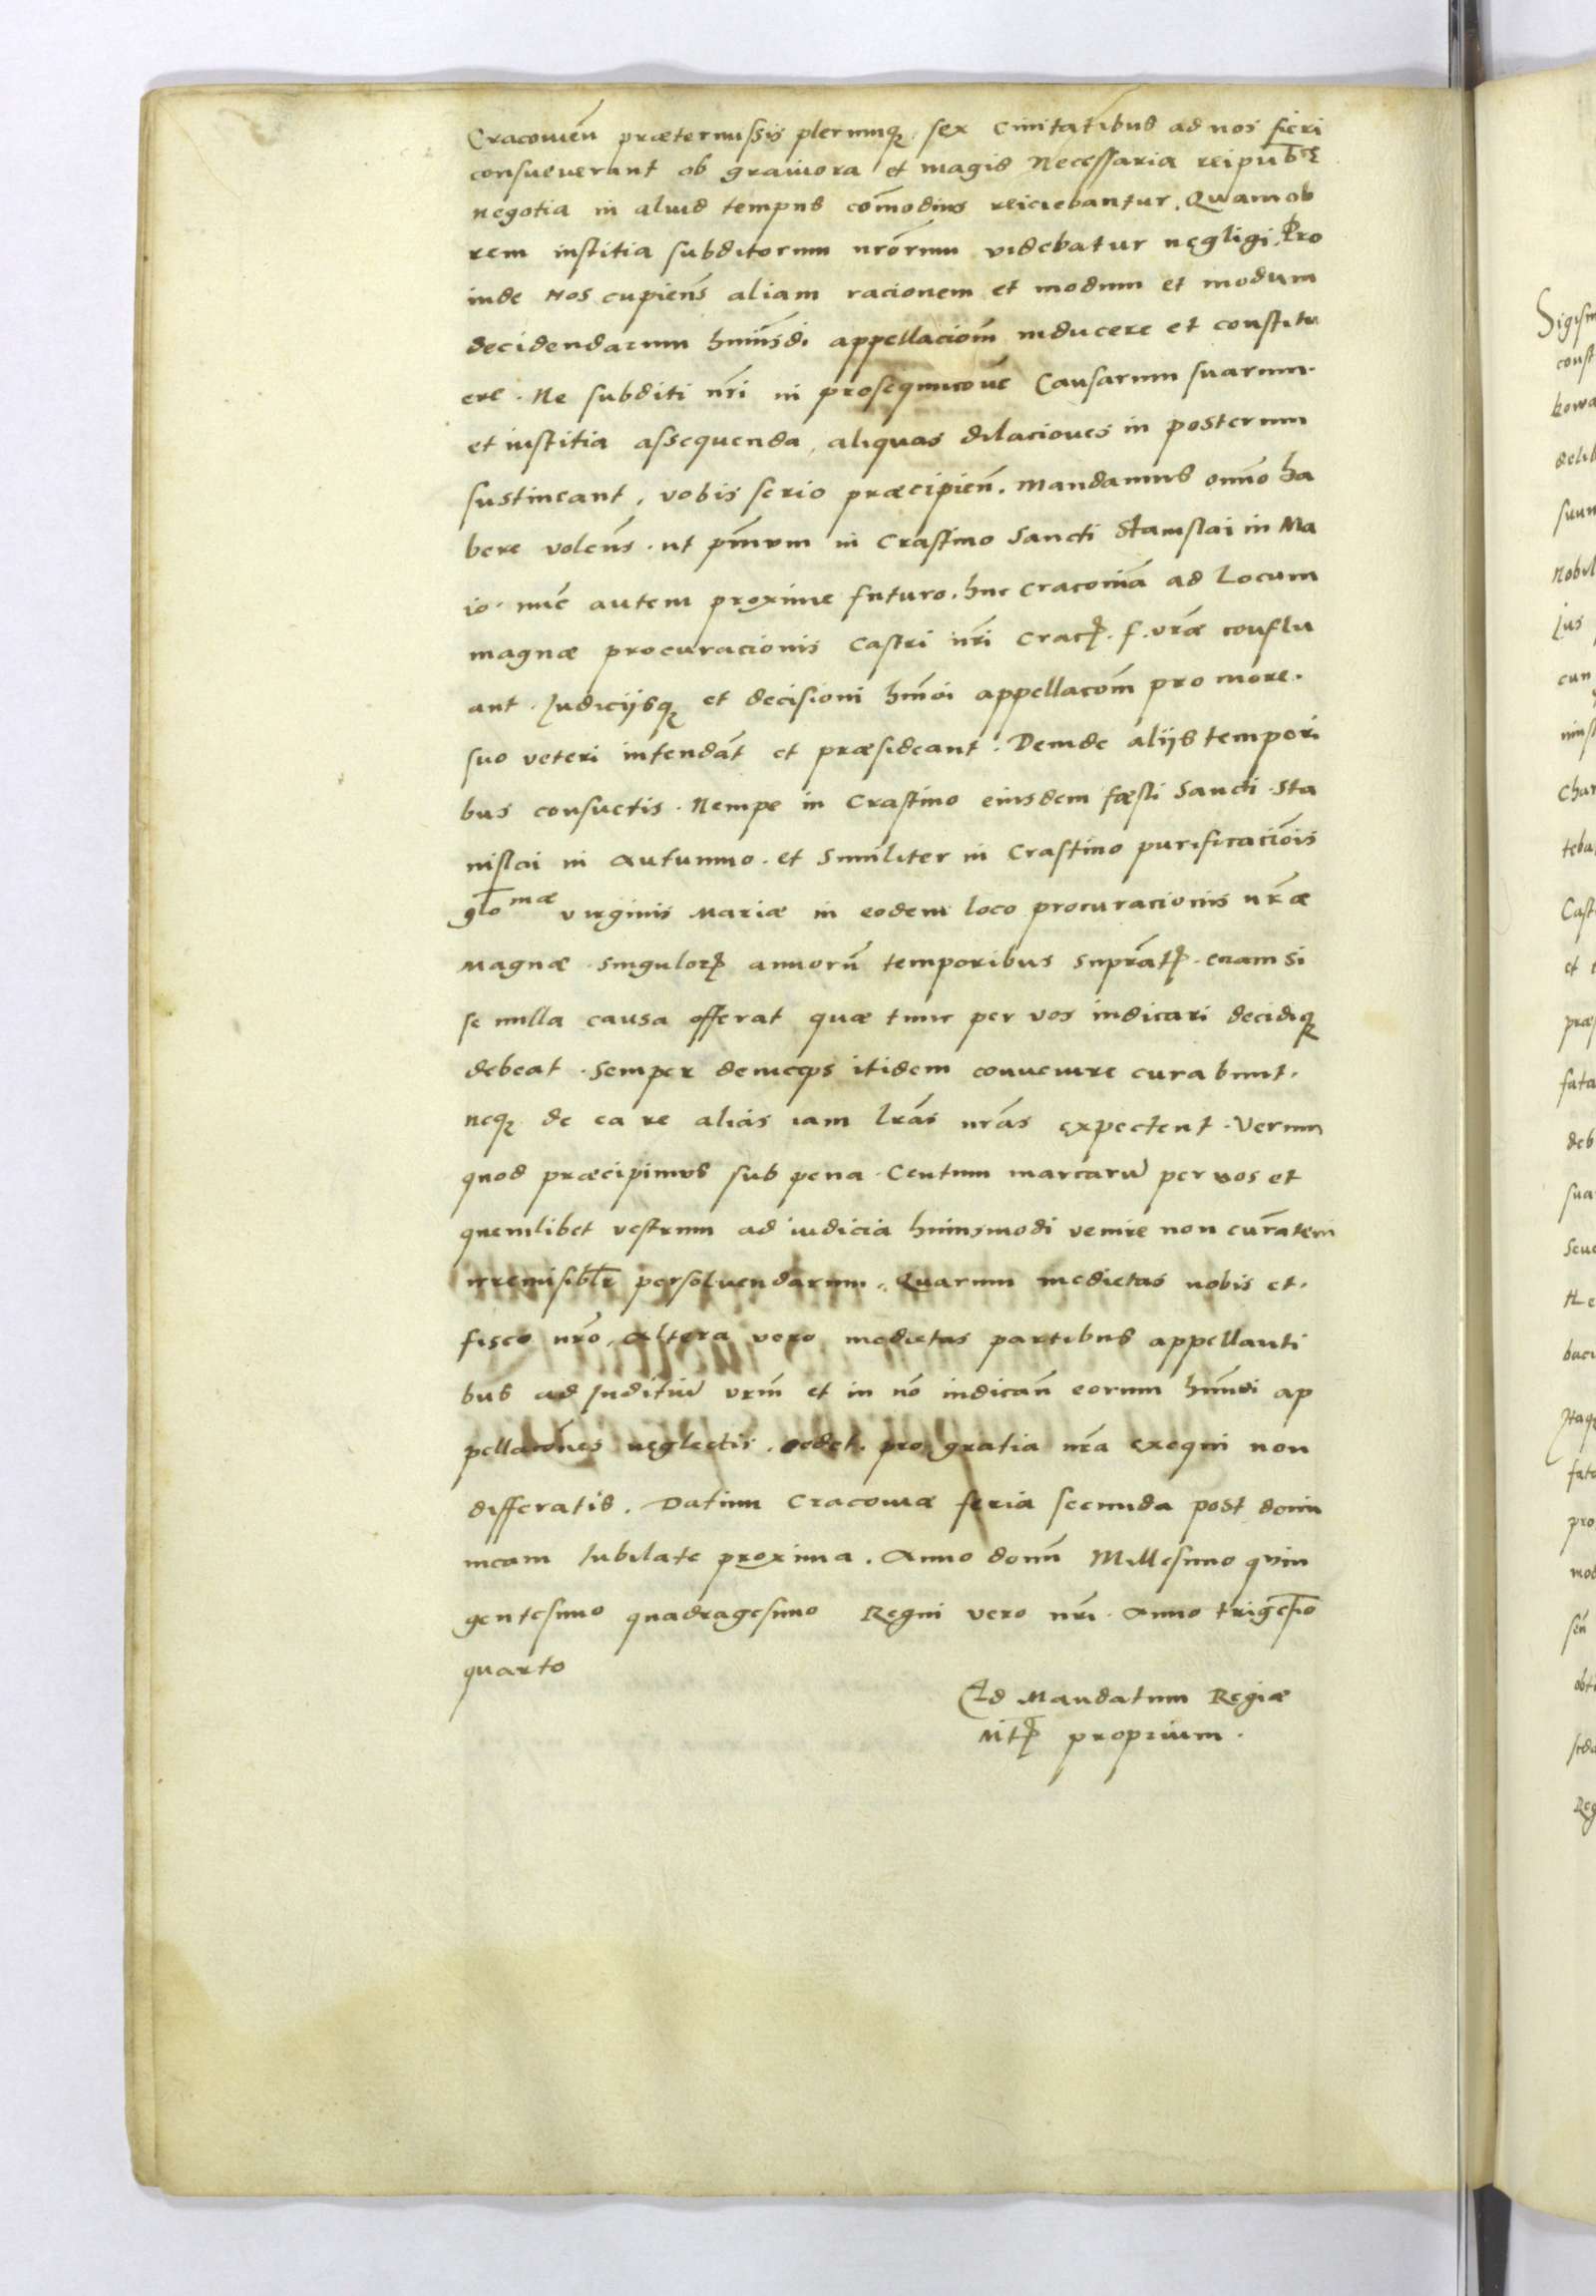 Cracouien̄ prætermissis plerumq̢ sex Ciuitatibus ad nos fieri
consueuerant ob grauiora et magis Necessaria reipub̄ce
negotia in aliud tempus com̄odius reiciebantur. Quamob
rem iustitia subditorum nr̄orum videbatur negligi. Pro
inde Nos cupien̄s aliam racionem et modum et modum
decidendarum huiusdi appellaciom̄ inducere et constitu
ere. Ne subditi nr̄i in prosequucōne Causarum suarum.
et iustitia assequenda, aliquas dilaciones in posterum
sustineant, vobis serio præcipien̄. mandamus om̄no ha
bere volen̄s. ut pm̄um in Crastino Sancti Stanislai in Ma
io. nūc autem proxime futuro. huc Cracouiā ad Locum
magnæ procuracionis Castri nr̄i Cracꝭ. f. vr̄æ conflu
ant. Judiciisq̢ et decisioni hm̄oi appellacom̄ pro more.
suo veteri intendāt et præsideant. Deinde aliis tempori
bus consuetis. Nempe in Crastino eiusdem fæsti Sancti Sta
nislai in Autumno. et Similiter in Crastino purificaciōis
glōmæ virginis Mariæ in eodem loco procuracionis nr̄æ
Magnæ. Singulorꝭ annorū temporibus supr̄atꝭ. eciam si
se nulla causa offerat quæ tunc per vos iudicari decidiq̢
debeat. Semper deinceps itidem conuenire curabunt.
neq̢ de ea re alias iam lr̄as nr̄as expectent. Verum
quod præcipimus sub pena. Centum marcarū per vos et
quemlibet vestrum ad iudicia huiusmodi venire non cur̄atem
irremisibl̄r persoluendarum. Quarum medietas nobis et.
fisco nr̄o. altera vero medietas partibus appellanti
bus ad Juditiū vr̄m et in nō iudican̄ eorum hm̄oi ap
pellacōnes neglectis. cedet. pro gratia nr̄a exequi non
differatis. Datum Cracouiæ feria secunda post domi
nicam Iubilate proxima. Anno domn̄ Millesimo quin
gentesimo quadragesimo Regni vero nr̄i. Anno triges̄io
quarto
Ad Mandatum Regiæ
Mtꝭ proprium.